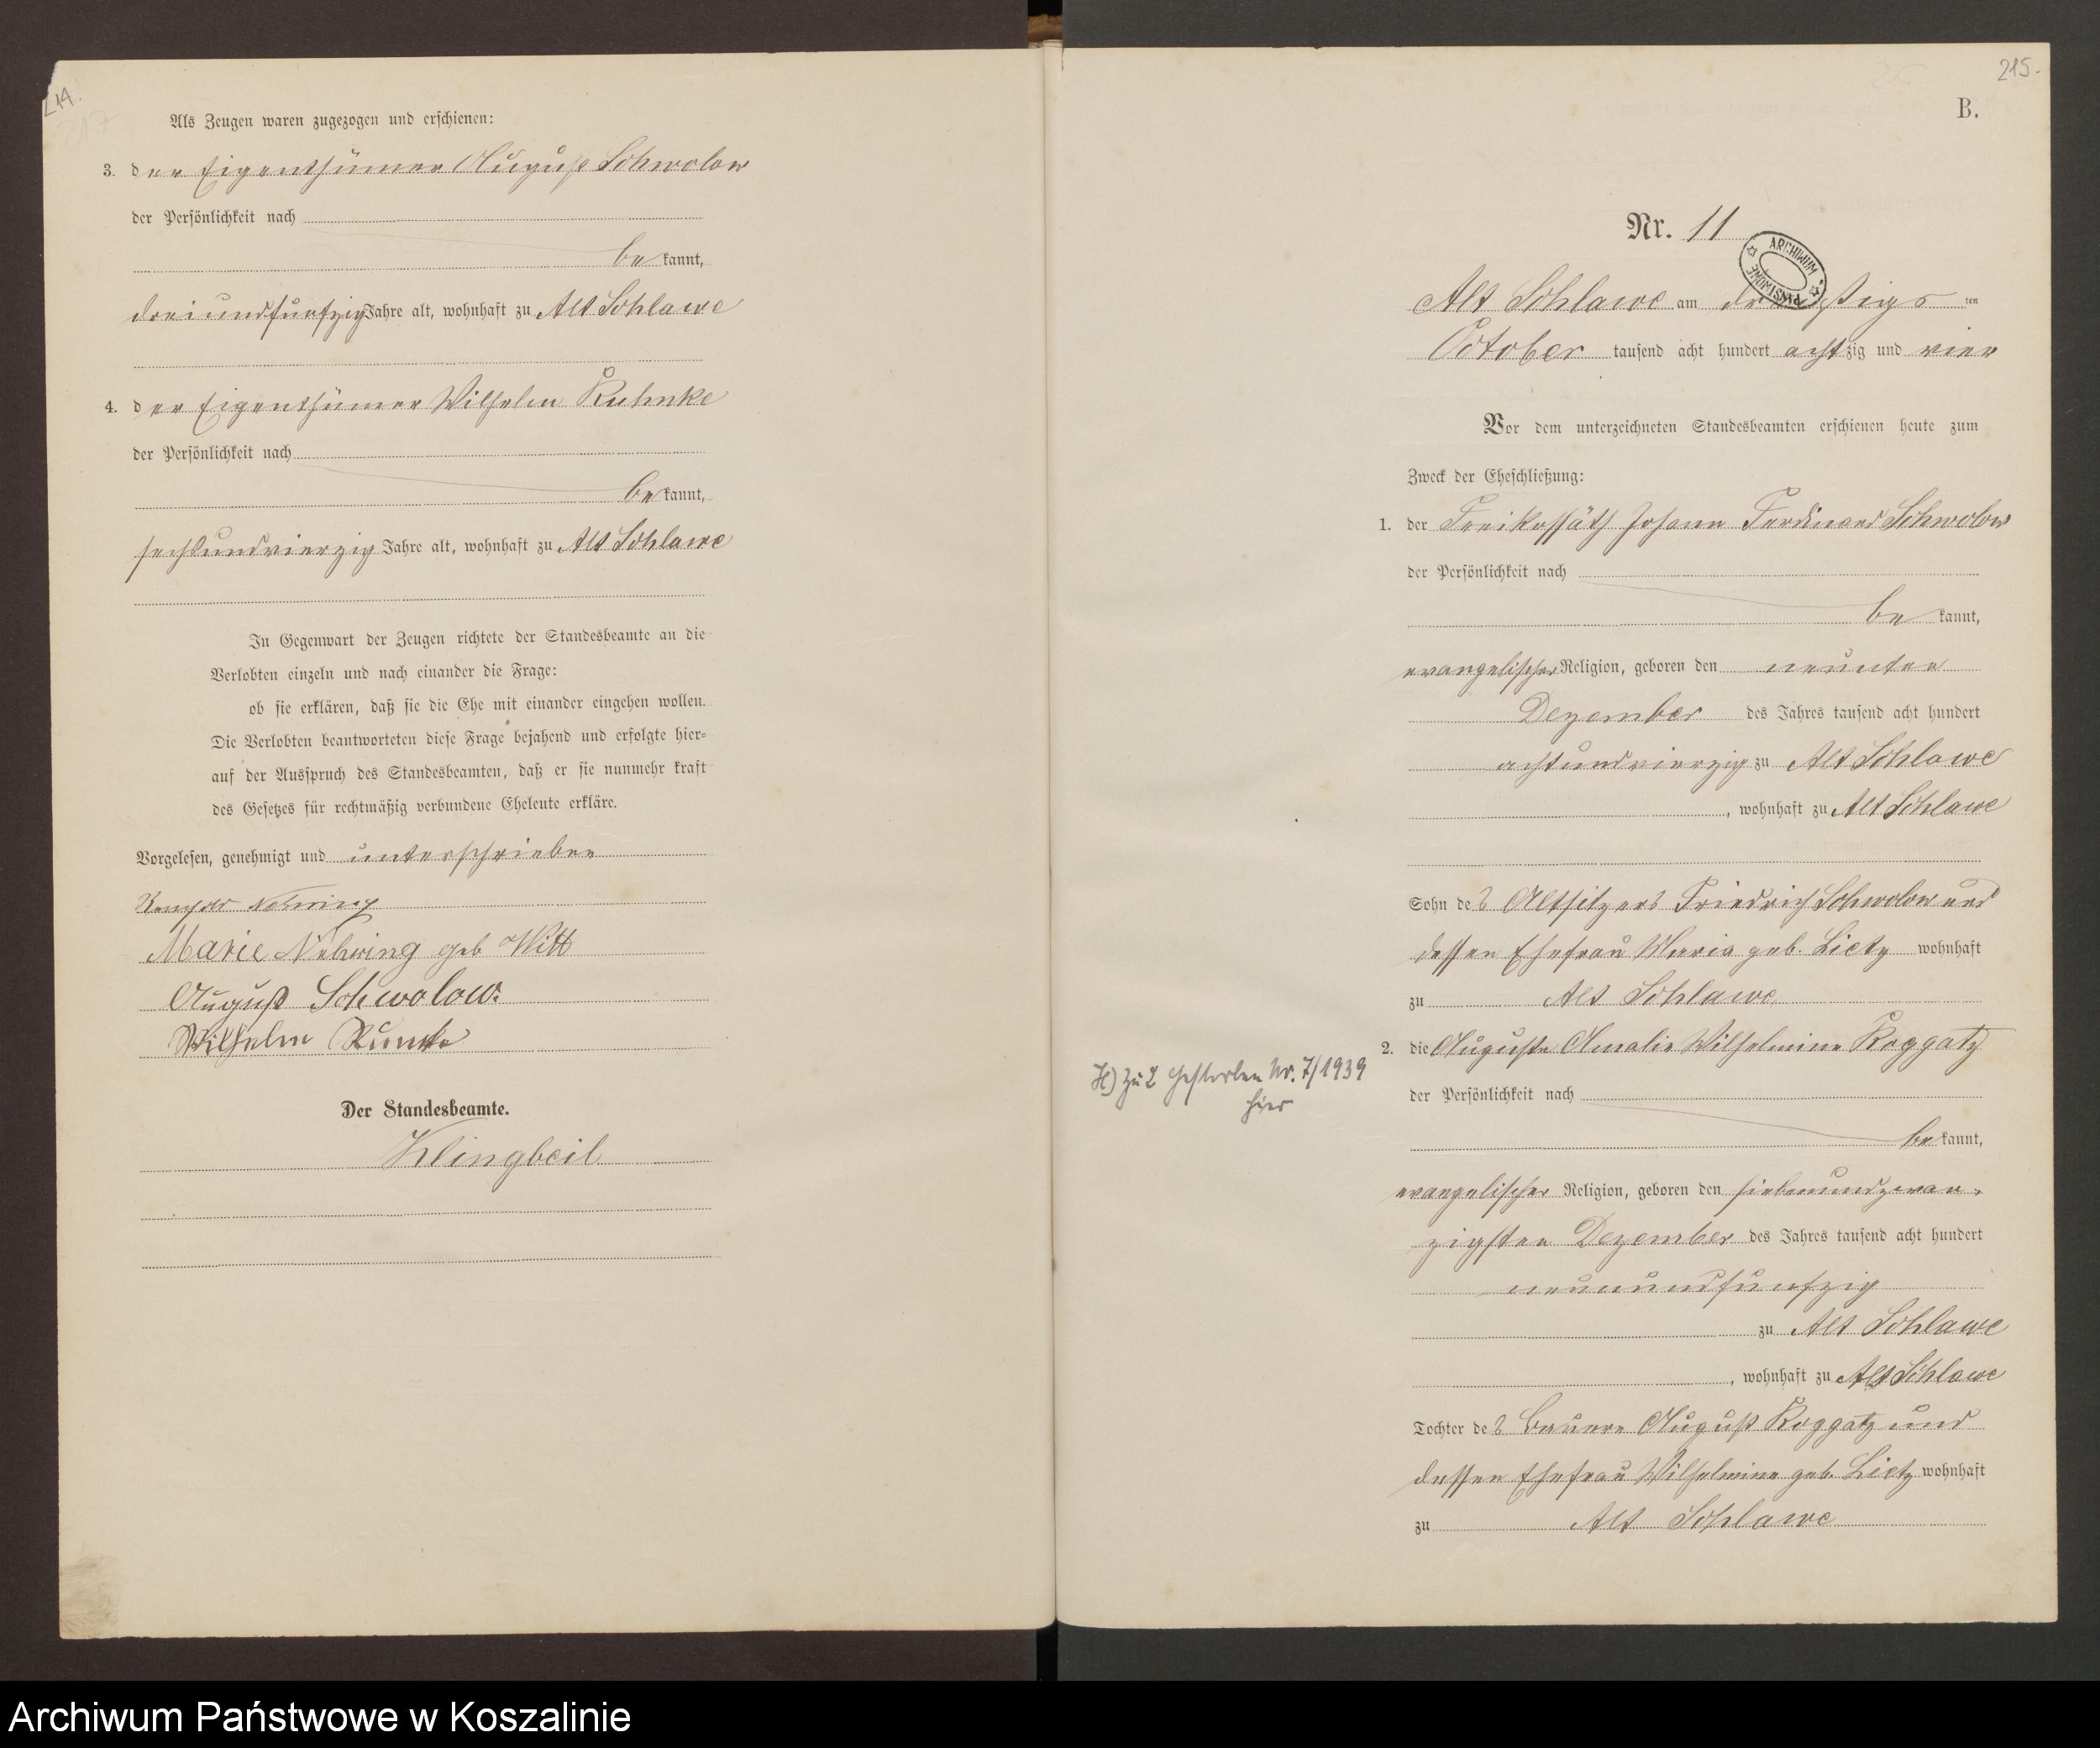 214.
Als Zeugen waren zugezogen und erschienen:
3. der Eigenthümer August Schwolow
der Persönlichkeit nach
bekannt,
dreiundfunfzig Jahre alt, wohnhaft zu Alt Schlawe
4. der Eigenthümer Wilhelm Kuhnke
der Persönlichkeit nach
bekannt,
sechsundvierzig Jahre alt, wohnhaft zu Alt Schlawe
In Gegenwart der Zeugen richtete der Standesbeamte an die
Verlobten einzeln und nach einander die Frage:
ob sie erklären, daß sie die Ehe mit einander eingehen wollen.
Die Verlobten beantworteten diese Frage bejahend und erfolgte hier-
auf der Ausspruch des Standesbeamten, daß er sie nunmehr kraft
des Gesetzes für rechtmäßig verbundene Eheleute erkläre.
Vorgelesen, genehmigt und unterschrieben
Nehring
Marie Nehring geb Witt
August Schwolow.
Wilhelm Kunke
Der Standesbeamte.
Klingbeil
215.
B.
Nr. 11
ARCHIWUM PAŃSTWOWE
Alt Schlawe am dreißigsten
October tausend acht hundert achtzig und vier
Vor dem unterzeichneten Standesbeamten erschienen heute zum
Zweck der Eheschließung:
1. der Freikossäth Johann Ferdinand Schwolow
der Persönlichkeit nach
bekannt,
evangelischer Religion, geboren den neunten
Dezember des Jahres tausend acht hundert
achtundvierzig zu Alt Schlawe
, wohnhaft zu Alt Schlawe
Sohn des Altsitzers Friedrich Schwolow und
dessen Ehefrau Maria geb. Lietz wohnhaft
zu Alt Schlawe
2. die Auguste Amalie Wilhelmine Roggatz
H) Zu 2 Gestorben Nr. 7/1939
hier
der Persönlichkeit nach
bekannt,
evangelischer Religion, geboren den siebenundzwan-
zigsten Dezember des Jahres tausend acht hundert
neunundfunfzig
zu Alt Schlawe
, wohnhaft zu Alt Schlawe
Tochter des Bauern August Roggatz und
dessen Ehefrau Wilhelmine geb. Lietz wohnhaft
zu Alt Schlawe
Archiwum Państwowe w Koszalinie